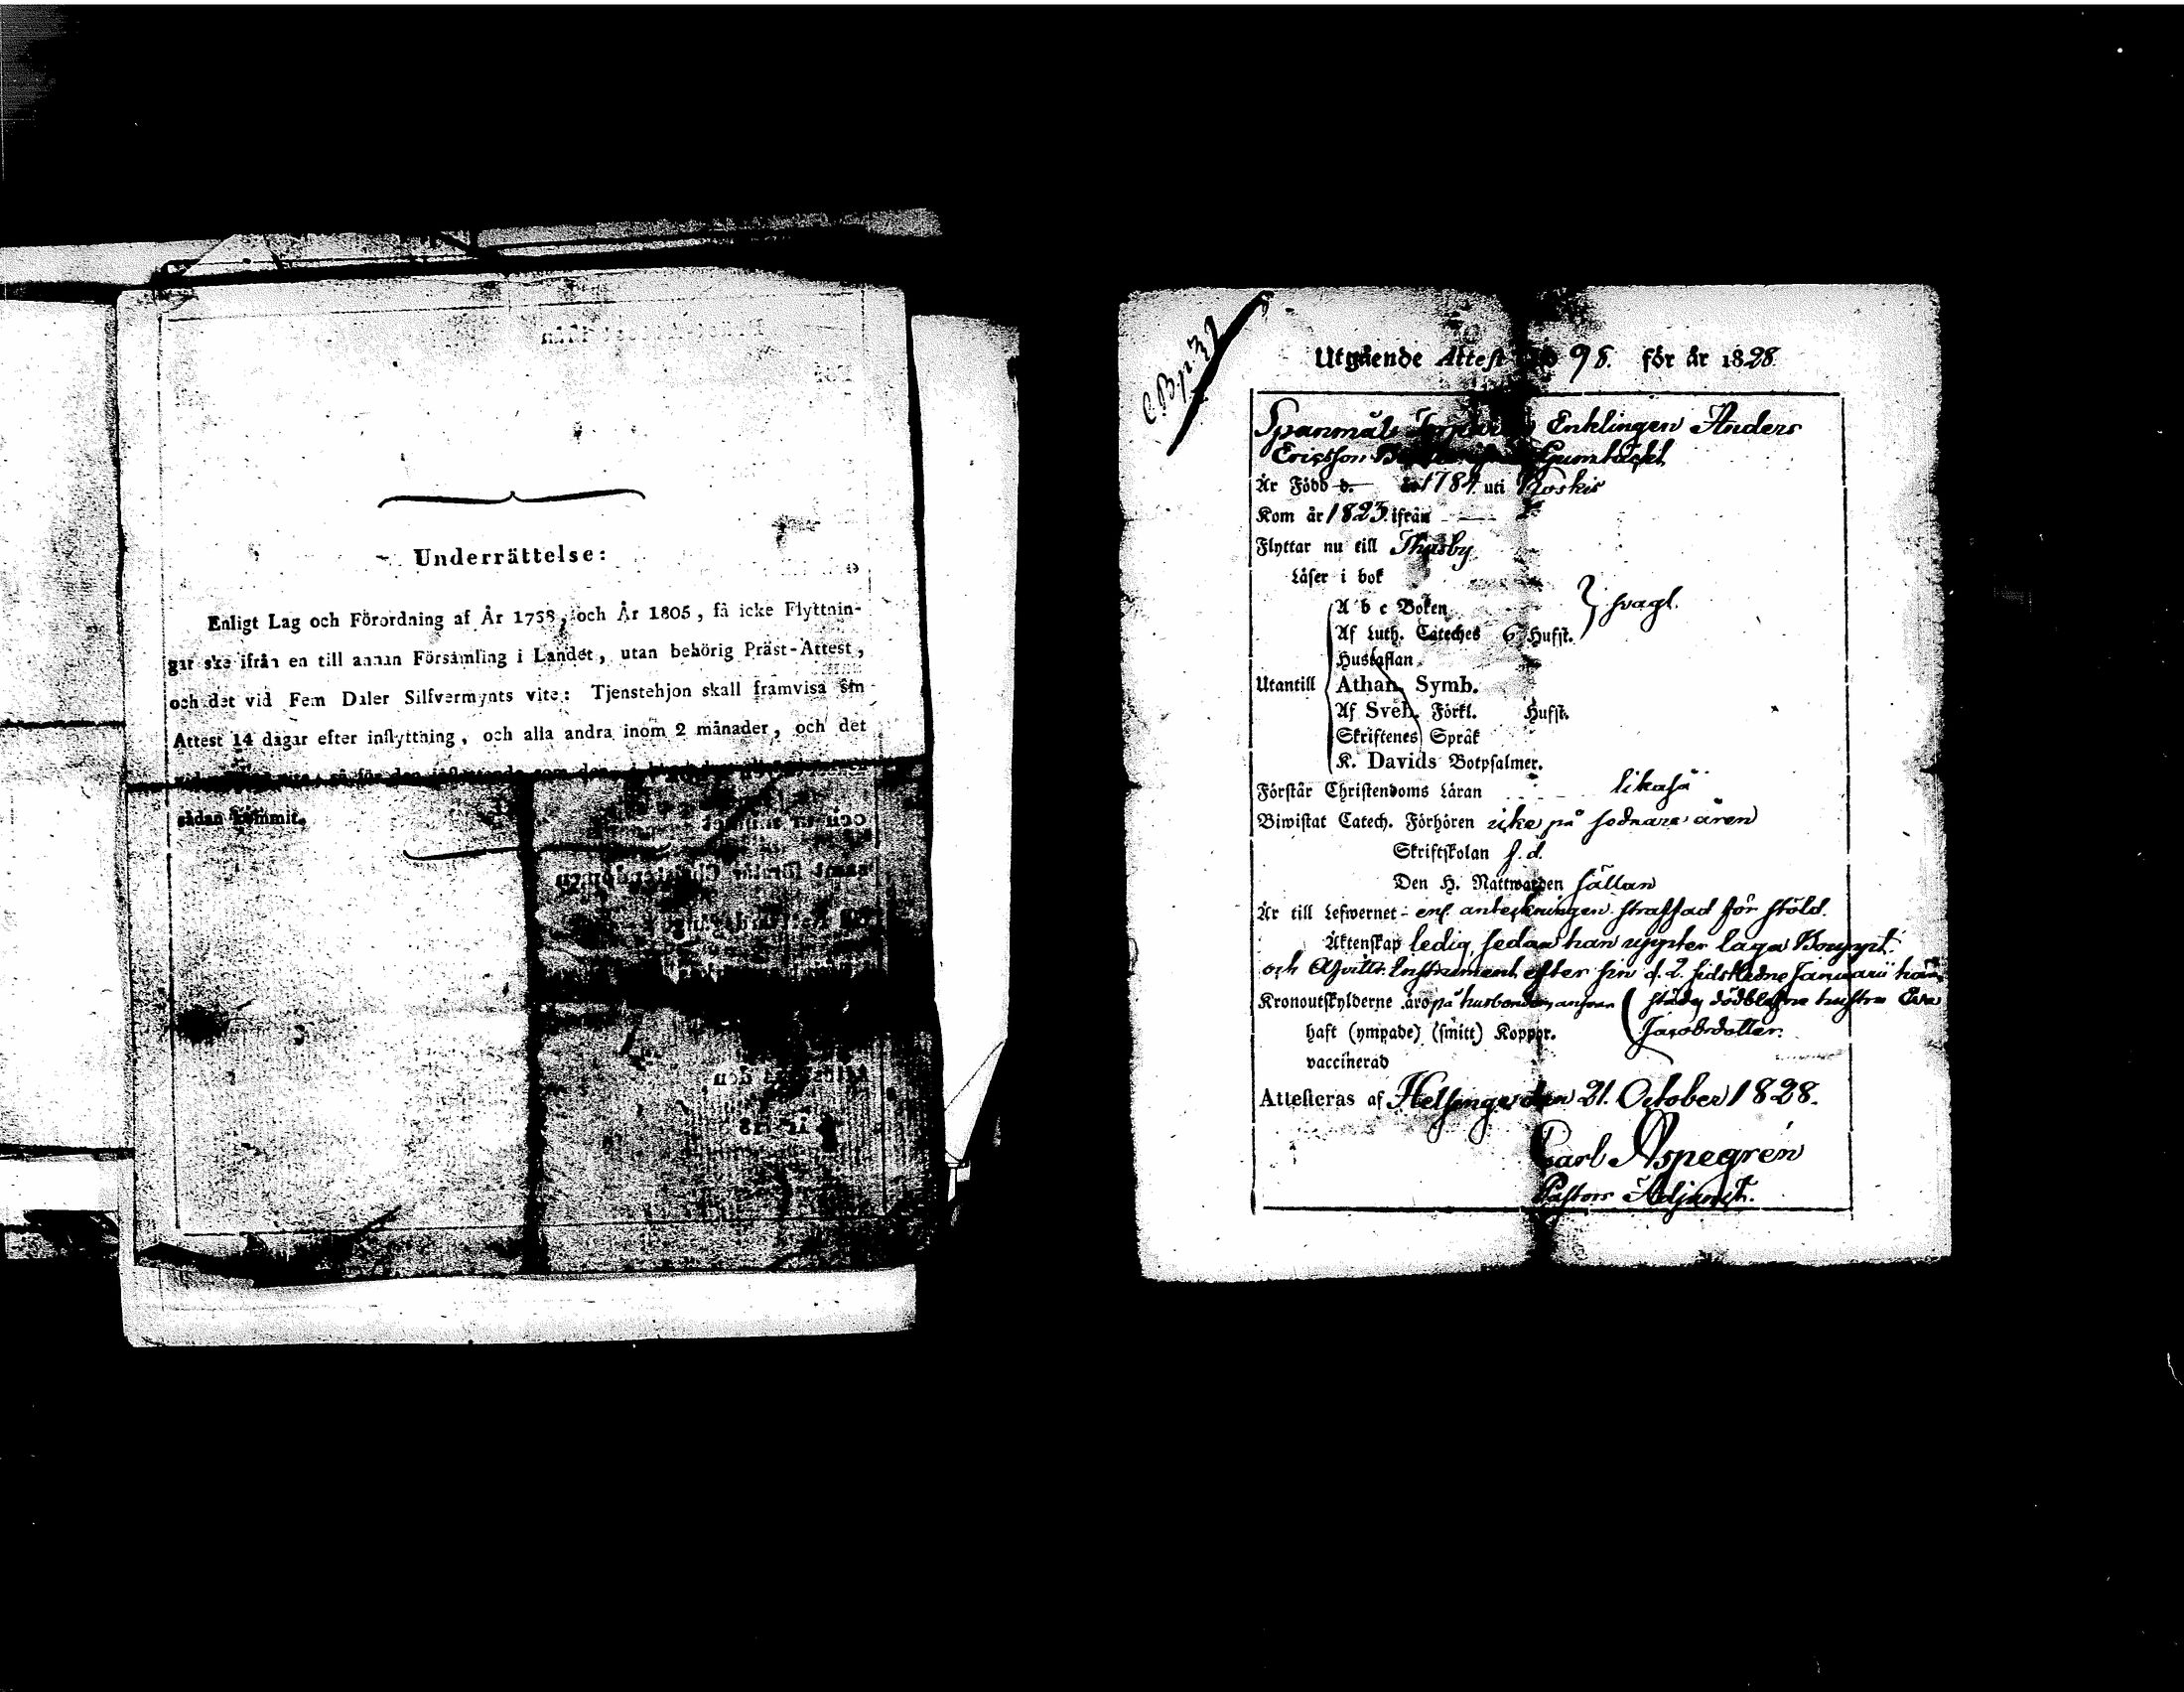 Underrättelse:
Enligt Lag och Förordning af År 1788, och År 1805, få icke Flyttnin-
gar ske ifrån en till annan Församling i Landet, utan behörig Präst-Attest,
och det vid Fem Daler Silfvermynts vite: Tjenstehjon skall framvisa sin
Attest 14 dagar efter inflyttning, och alla andra inom 2 månader, och det
sådan kommit.
C Bp 32
Utgående Attest 98. för år 1828
Spanmåls Enklingen Anders
Ericsson Gumtäckt
Är Född d. år 1784 uti Koskis
Kom år 1823. ifrån
Flyttar nu till Thusby
Läser i bok
A b c Boken
Af Luth. Cateches 6 Hufst. } svagl.
Hustaflan
Utantill Athan. Symb.
Af Sveb. Förkl. Hufst.
Skriftenes Språk
K. Davids Botpsalmer.
Förstår Christendoms Läran likaså
Biwistat Catech. Förhören icke på sednare åren
Skriftskolan s. d.
Den H. Nattwarden sällan
Är till Lefwernet enl. anteckningen straffad för stöld.
Äktenskap ledig sedan han uppter laga Bouppt.
och Afvittr. Instrument efter sin d. 2. sidstledne Januarii här
Kronoutskylderne äro på husbondens ansvar ( städes dödblefne hustru Eva
haft (ympade) (smitt) Koppor. Jacobsdotter.
vaccinerad
Attesteras af Helsinge den 21. October 1828.
Carl Aspegrén
Pastors Adjunct.